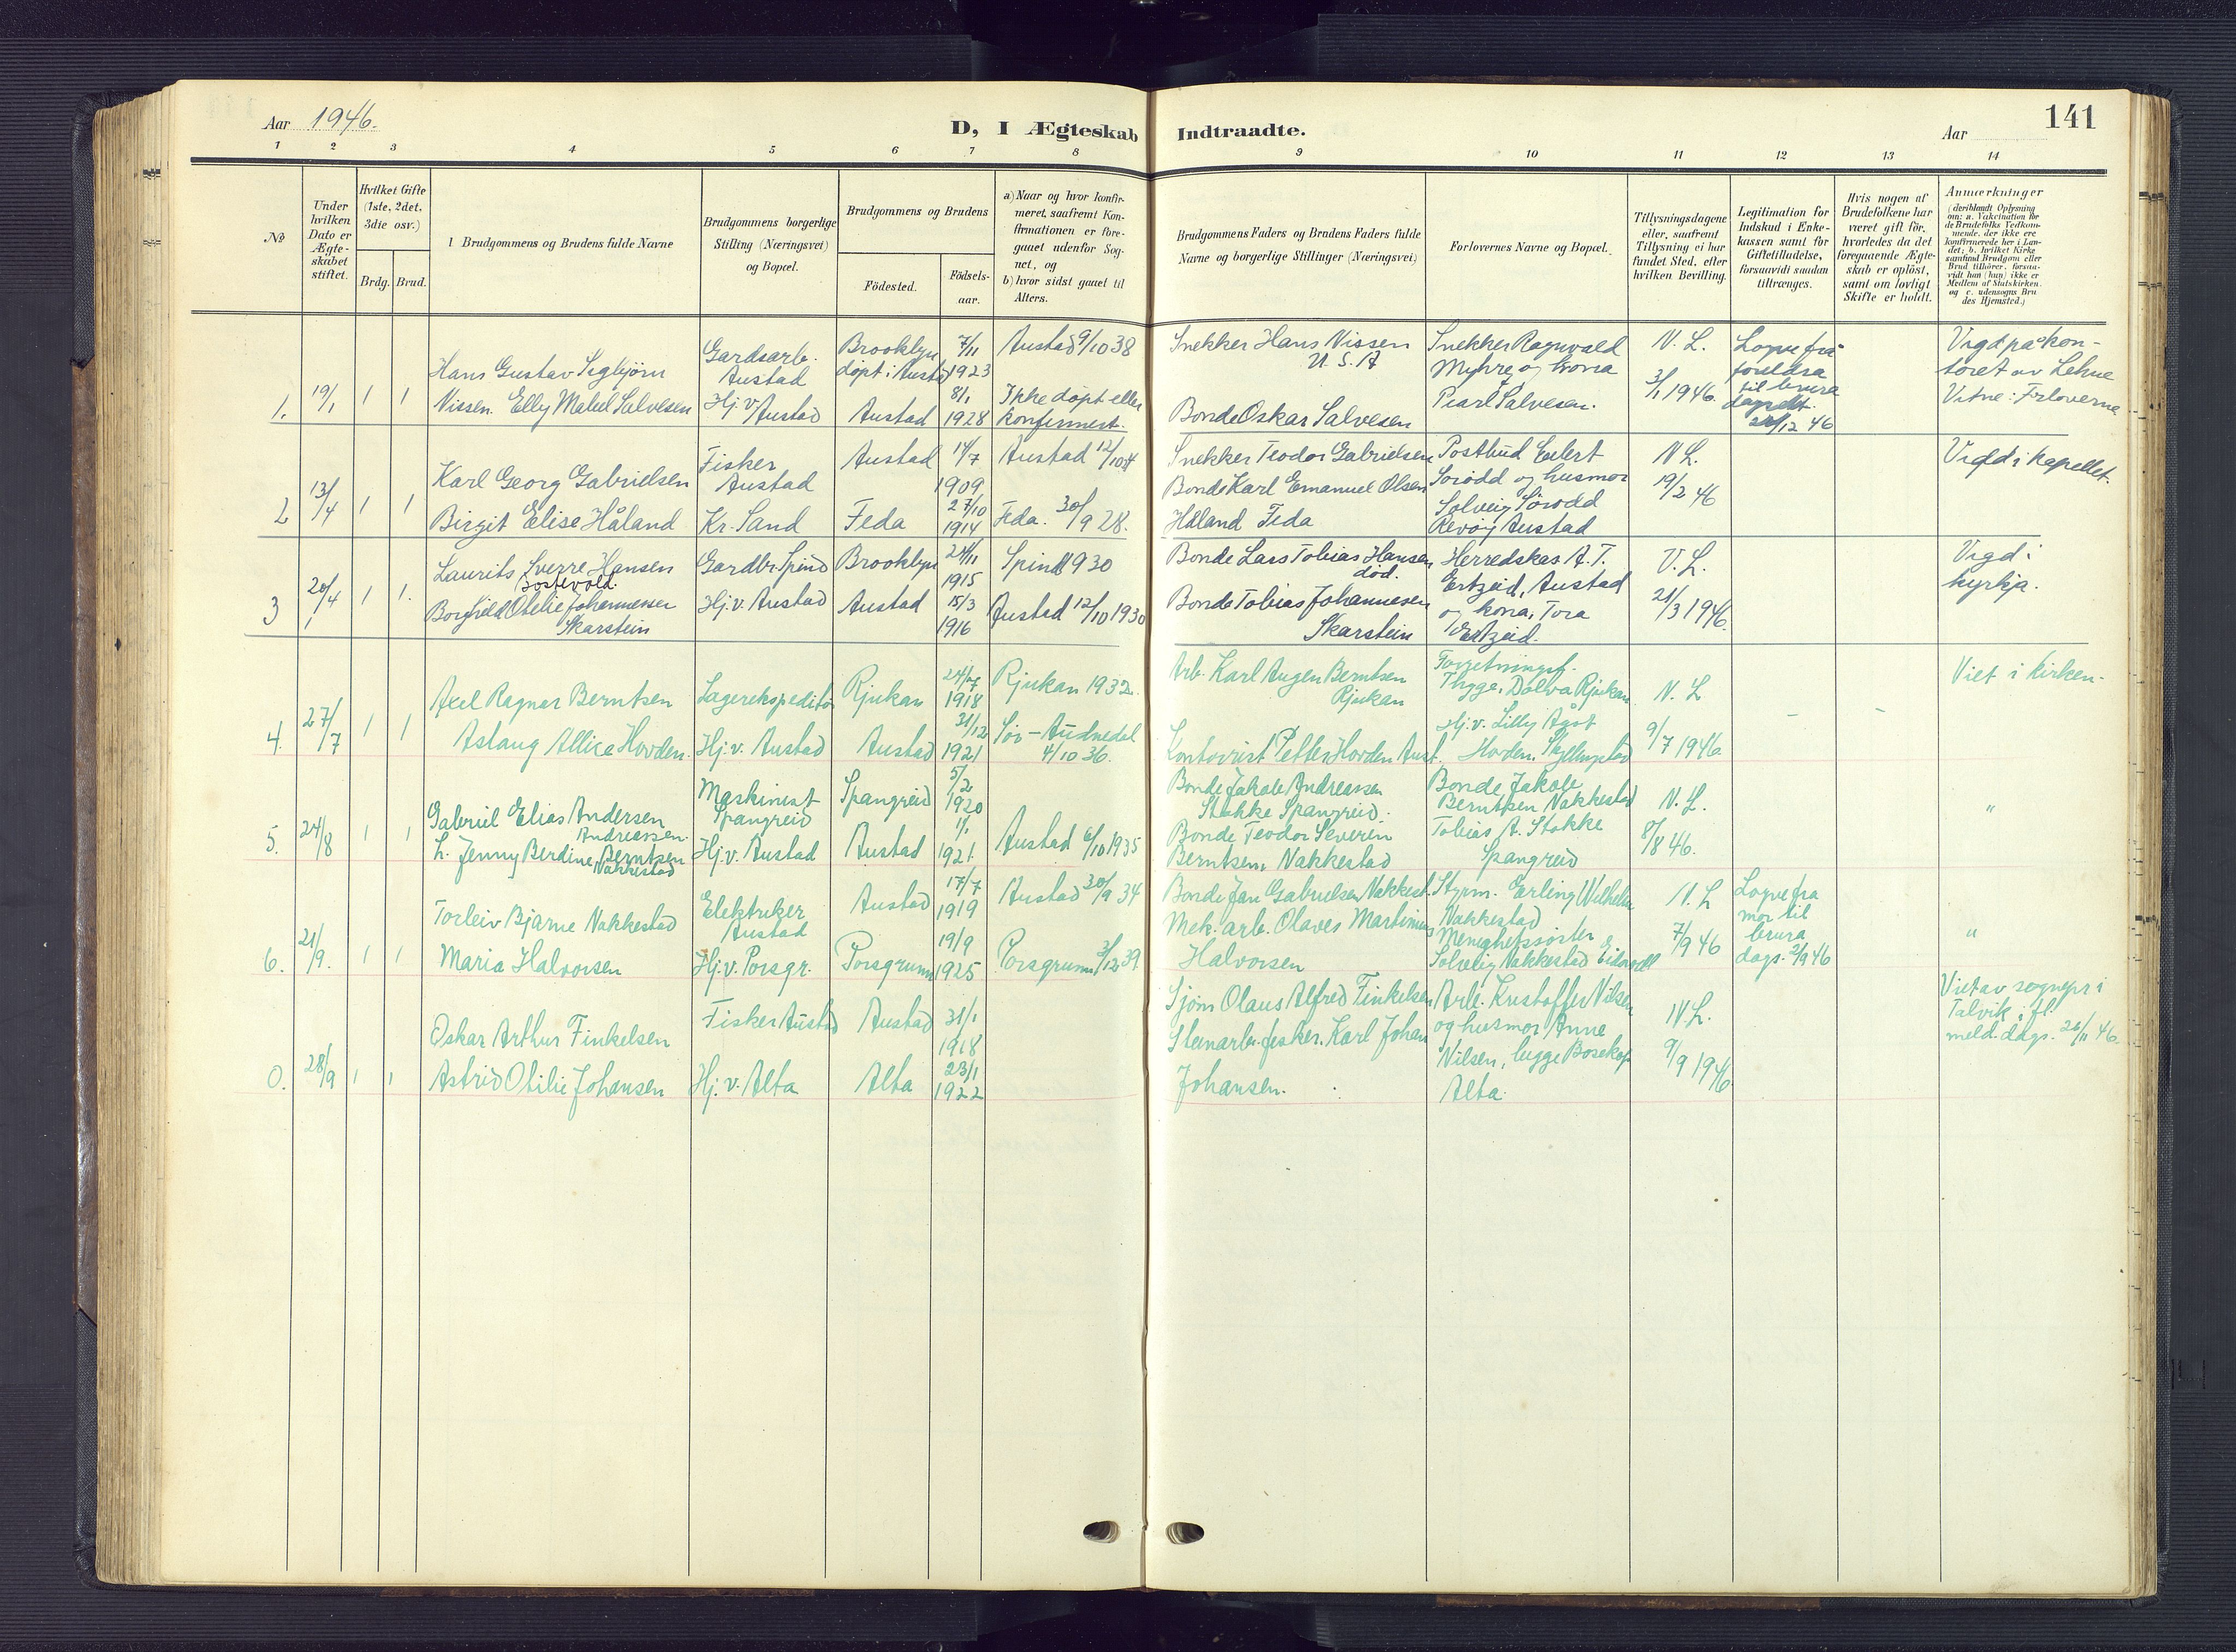 Aar 1946.
D, I Ægteskab Indtraadte.
Aar
141
1 2 3 4 5 6 7 8 9 10 11 12 13 14
№
Under hvilken Dato er Ægte-skabet stiftet.
Hvilket Gifte (1ste, 2det, 3die osv.)
Brdg. Brud.
1 Brudgommens og Brudens fulde Navne
Brudgommens borgerlige Stilling (Næringsvei) og Bopæl.
Brudgommens og Brudens
Födested.
Födsels-aar.
a) Naar og hvor konfir-meret, saafremt Kon-firmationen er fore-gaaet udenfor Sog-net, og
b) hvor sidst gaaet til Alters.
Brudgommens Faders og Brudens Faders fulde Navne og borgerlige Stillinger (Næringsvei)
Forlovernes Navne og Bopæl.
Tillysningsdagene eller, saafremt Tillysning ei har fundet Sted, efter hvilken Bevilling.
Legitimation for Indskud i Enke-kassen samt for Giftetilladelse, forsaavidt saadan tiltrænges.
Hvis nogen af Brudefolkene har været gift för, hvorledes da det foregaaende Ægte-skab er oplöst, samt om lovligt Skifte er holdt.
Anmærkninger
(deriblandt Oplysning om: a. Vakcination for de Brudefolks Vedkom-mende, der ikke ere konfirmerede her i Lan-det; b. hvilket Kirke-samfund Brudgom eller Brud tilhörer, forsaa-vidt han (hun) ikke er Medlem af Statskirken, og c. udensogns Bru-des Hjemsted.)
1. 19/1 1 1
Hans Gustav Sigbjörn
Nissen. Elly Mabel Salvesen
Gardsarb.
Austad
Hj.v. Austad
Brooklyn
döpt i Austad
Austad
7/11
1923
8/1
1928
Austad 9/10 38
Ikke döpt eller
konfirmert.
Snekker Hans Nissen
U. S. A
Bonde Oskar Salvesen
Snekker Ragnvald
Myhre og kona
Pearl Salvesen.
N. L.
3/1 1946.
Lovve frå
foreldra
til brura
12 46
Vigd på kon-
toret av Lehne
Vitne: Forloverne
2 13/4 1 1
Karl Georg Gabrielsen
Birgit Elise Håland
Fisker
Austad
Kr. Sand
Austad
Feda
14/7
1909
27/10
1914
Austad 12/10
Feda. 30/9 28.
Snekker Teodor Gabrielsen
Bonde Karl Emanuel Olsen
Håland Feda
Postbud Eilert
Sörödd og husmor
Solveig Sörödd
Revöy Austad
N L.
19/2 46
Vigd i kapellet.
3 20/4 1 1.
Laurits Sverre Hansen
Borghild Otelie Johannessen
Skarstein
Gardbr. Spind
Hj.v. Austad
Brooklyn
Austad
24/11
1915
15/3
1916
Spind 1930
Austad 12/10 1930
Bonde Lars Tobias Hansen
död.
Bonde Tobias Johannesen
Skarstein
Herredskas. A. T.
Ertzeid, Austad
og kona, Tora
Ertzeid.
V. L.
21/3 1946.
Vigd i
kyrkja.
4. 27/7 1 1
Axel Ragnar Berntsen
Aslaug Allice Horden.
Lagerekspeditör
Hj.v. Austad
Rjukan
Austad
24/7
1918
31/12
1921
Rjukan 1932.
Sör-Audnedal
4/10 36.
Arb. Karl Augen Berntsen
Rjukan
Kontorist Petter Horden Aust.
Forretningsf.
Thygge, Dolva Rjukan
Hj.v. Lilly Ågot
Horden,
N. L
9/7 1946
Viet i kirken.
5. 24/8 1 1
Gabriel Elias Andersen
Andreassen.
L. Jenny Berdine Berntsen
Nakkestad
Maskinist
Spangreid
Hj.v. Austad
Spangreid
Austad
5/2
1920
1/1
1921
Austad 6/10 1935
Bonde Jakob Andreassen
Stokke Spangreid.
Bonde Teodor Severin
Berntsen, Nakkestad
Bonde Jakob
Berntsen Nakkestad
Tobias A. Stokke
Spangreid
N. L.
8/8 46.
"
6. 21/9. 1 1
Torleiv Bjarne Nakkestad
Maria Halvorsen
Elektriker
Austad
Hj.v. Porsgr.
Austad
Porsgrunn
17/7
1919
19/9
1925
Austad 30/9 34
Porsgrunn 3/12 39
Bonde Jan Gabrielsen Nakkest.
Mek. arb. Olaves Martinius
Halvorsen
Styrm. Erling Wilhelm
Nakkestad
Menighetssöster
Solveig Nakkestad Eidsvoll
N. L
7/9 46
Lovve fra
mor til
brura
dags. 2/9 46
"
0. 28/9 1 1
Oskar Arthur Finkelsen
Astrid Otilie Johansen
Fisker Austad
Hj.v. Alta
Austad
Alta
31/1
1918
23/1
1922
Sjöm Olaus Alfred Finkelsen
Stenarb. fisker. Karl Johan
Johansen.
Arb. Kristoffer Nilsen
og husmor Anne
Nilsen, begge Bosekop
Alta.
N. L.
9/9 1946
Viet av sognepr i
Talvik, ifl.
meld. dags. 26/11 46.